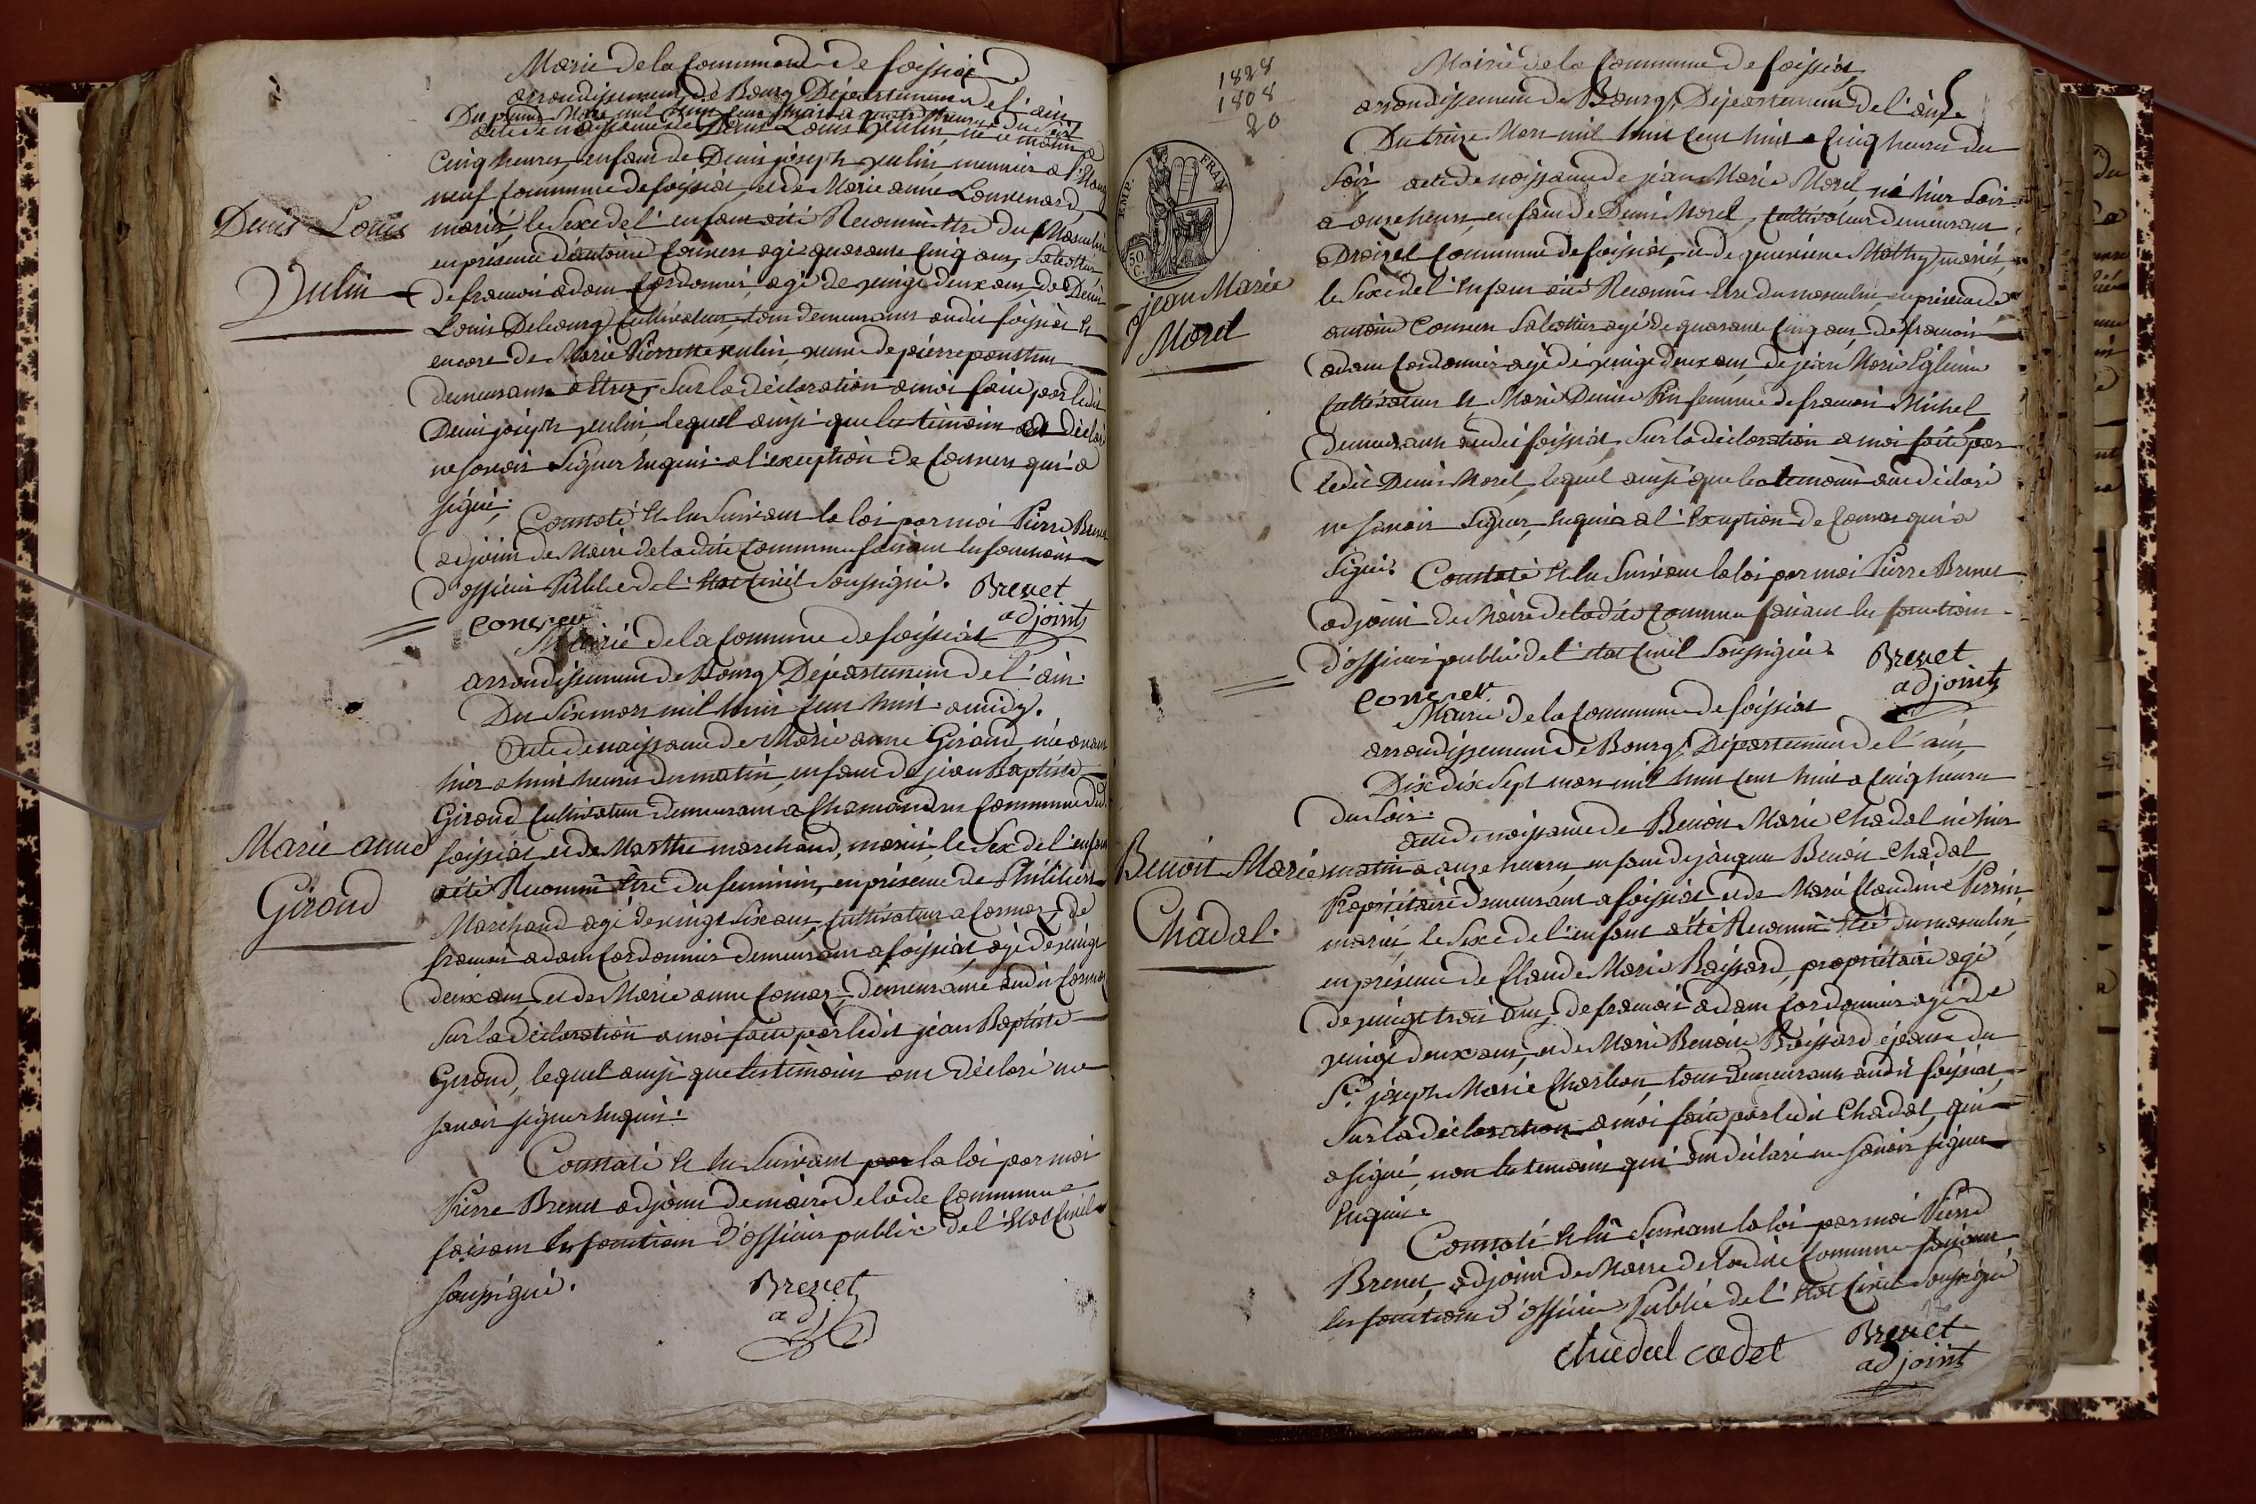 Mairie de la Commune de foissiat
arrondissement de Bourg Département de l'ain
Du premier Mars mil huit cent huit a quatre heures du Soir
acte de naissance de Denis Louis Vulin, né ce matin a
Cinq heures, enfant de Denis joseph vulin, meunier a l'Etang
neuf Commune de foissiat, et de Marie anne Louvenard,
Denis Louis
Vulin
mariés, le Sexe de l'enfant a été Reconnu être du Masculin
en présence d'antoine Convers agé quarante Cinq ans, Sabottier
de francois adam Cordonnier, agé de vingt deux ans, de Denis
Louis Cultivateur, tous demeurants audit foissiat et
encore de Marie Pierrette vulin, veuve de pierre
demeurante a Etrez, Sur la déclaration a moi faite par ledit
Denis joseph vulin, lequel ainsi que les témoins ont déclaré
ne savoir Signer Enquis. a l'exception de Convers qui a
signé.
Constaté et lu Suivant la loi par moi Pierre Brevet
adjoint de Maire de ladite Commune faisant les fonctions
d'officier Public de l'Etat Civil Soussigné. Brevet
adjoint
Convers
Mairie de la Commune de foissiat
arrondissement de Bourg Département de l'ain.
Du Six mars mil huit Cent huit a midy.
Acte de naissance de Marie anne Girond, née avant
hier a huit heures du matin, enfant de jean Baptiste
Girond Cultivateur demeurant a Chamandrey Commune dud.
Marie anne
Girond
foissiat et de Marthe marchand, mariés, le Sex de l'enfant
a été Reconnu être du feminin, en présence de Philibert
Marchand agé de vingt Six ans, Cultivateur a Cormoz, de
francois adam Cordonnier demeurant a foissiat, agé de vingt
deux ans, et de Marie anne demeurante audit Cormoz
Sur la déclaration a moi faite par ledit jean Baptiste
Girond, lequel ainsi que les témoins ont déclaré ne
savoir signer Enquis.
Constaté et lu Suivant par la loi par moi
Pierre Brevet adjoint de maire de lade Commune
faisant les fonctions d'officier public de l'Etat Civil
soussigné.
Brevet
adj
1828
1808
20
TIMP. FRAN.
50 C.
Mairie de la Commune de foissiat
arrondissement de Bourg, Département de l'ain
Du treize Mars mil huit Cent huit a Cinq heures du
Soir acte de naissance de jean Marie Morel, né hier Soir
a onze heures, enfant de Denis Morel, Cultivateur demeurant
a Commune de foissiat, et de Mathy mariés,
Jean Marie
Morel
le Sexe de l'Enfant a été Reconnu Etre du masculin, en présence de
antoine Convers Sabottier agé de quarante Cinq ans, de francois
adam Cordonnier agé de vingt deux ans, de jean Marie
Cultivateur et Marie Denise Pin femme de francois Michel
demeurants audit foissiat, Sur la déclaration a moi faite par
ledit Denis Morel, lequel ainsi que les témoins ont déclaré
ne savoir Signer, Enquis a l'Exception de Convers qui a
Signé. Constaté et lu Suivant la loi par moi Pierre Brevet
adjoint de Maire de ladite Commune faisant les fonctions
d'officier public de l'etat Civil Soussigné. Brevet
adjoint
Convers
Mairie de la Commune de foissiat
arrondissement de Bourg, Département de l'ain
Dix dix Sept mars mil huit Cent huit a Cinq heures
du Soir.
acte de naissance de Benoit Marie Chadal né hier
Benoit Marie
Chadal.
matin a onze heures, enfant de jacques Benoit Chadal,
Propriétaire demeurant a foissiat et de Marie Claudine Perrin,
mariés, le Sexe de l'enfant a été Reconnu Etre du masculin,
en présence de Claude Marie Boissard, propriétaire agé
de vingt trois ans, de francois adam Cordonnier agé de
vingt deux ans, et de Marie Benoite Boissard épouse du
Sr joseph Marie Charbon, tous demeurants audit foissiat,
Sur la déclaration a moi faite par ledit Chadal, qui
a signé, non les temoins qui ont déclaré ne savoir signer
Enquis.
Constaté et lû Suivant la loi par moi Pierre
Brevet, adjoint de Maire de ladite Commune faisant
les fonctions d'officier Public de l'etat Civil Soussigné
Chadal cadet
Brevet
adjoint